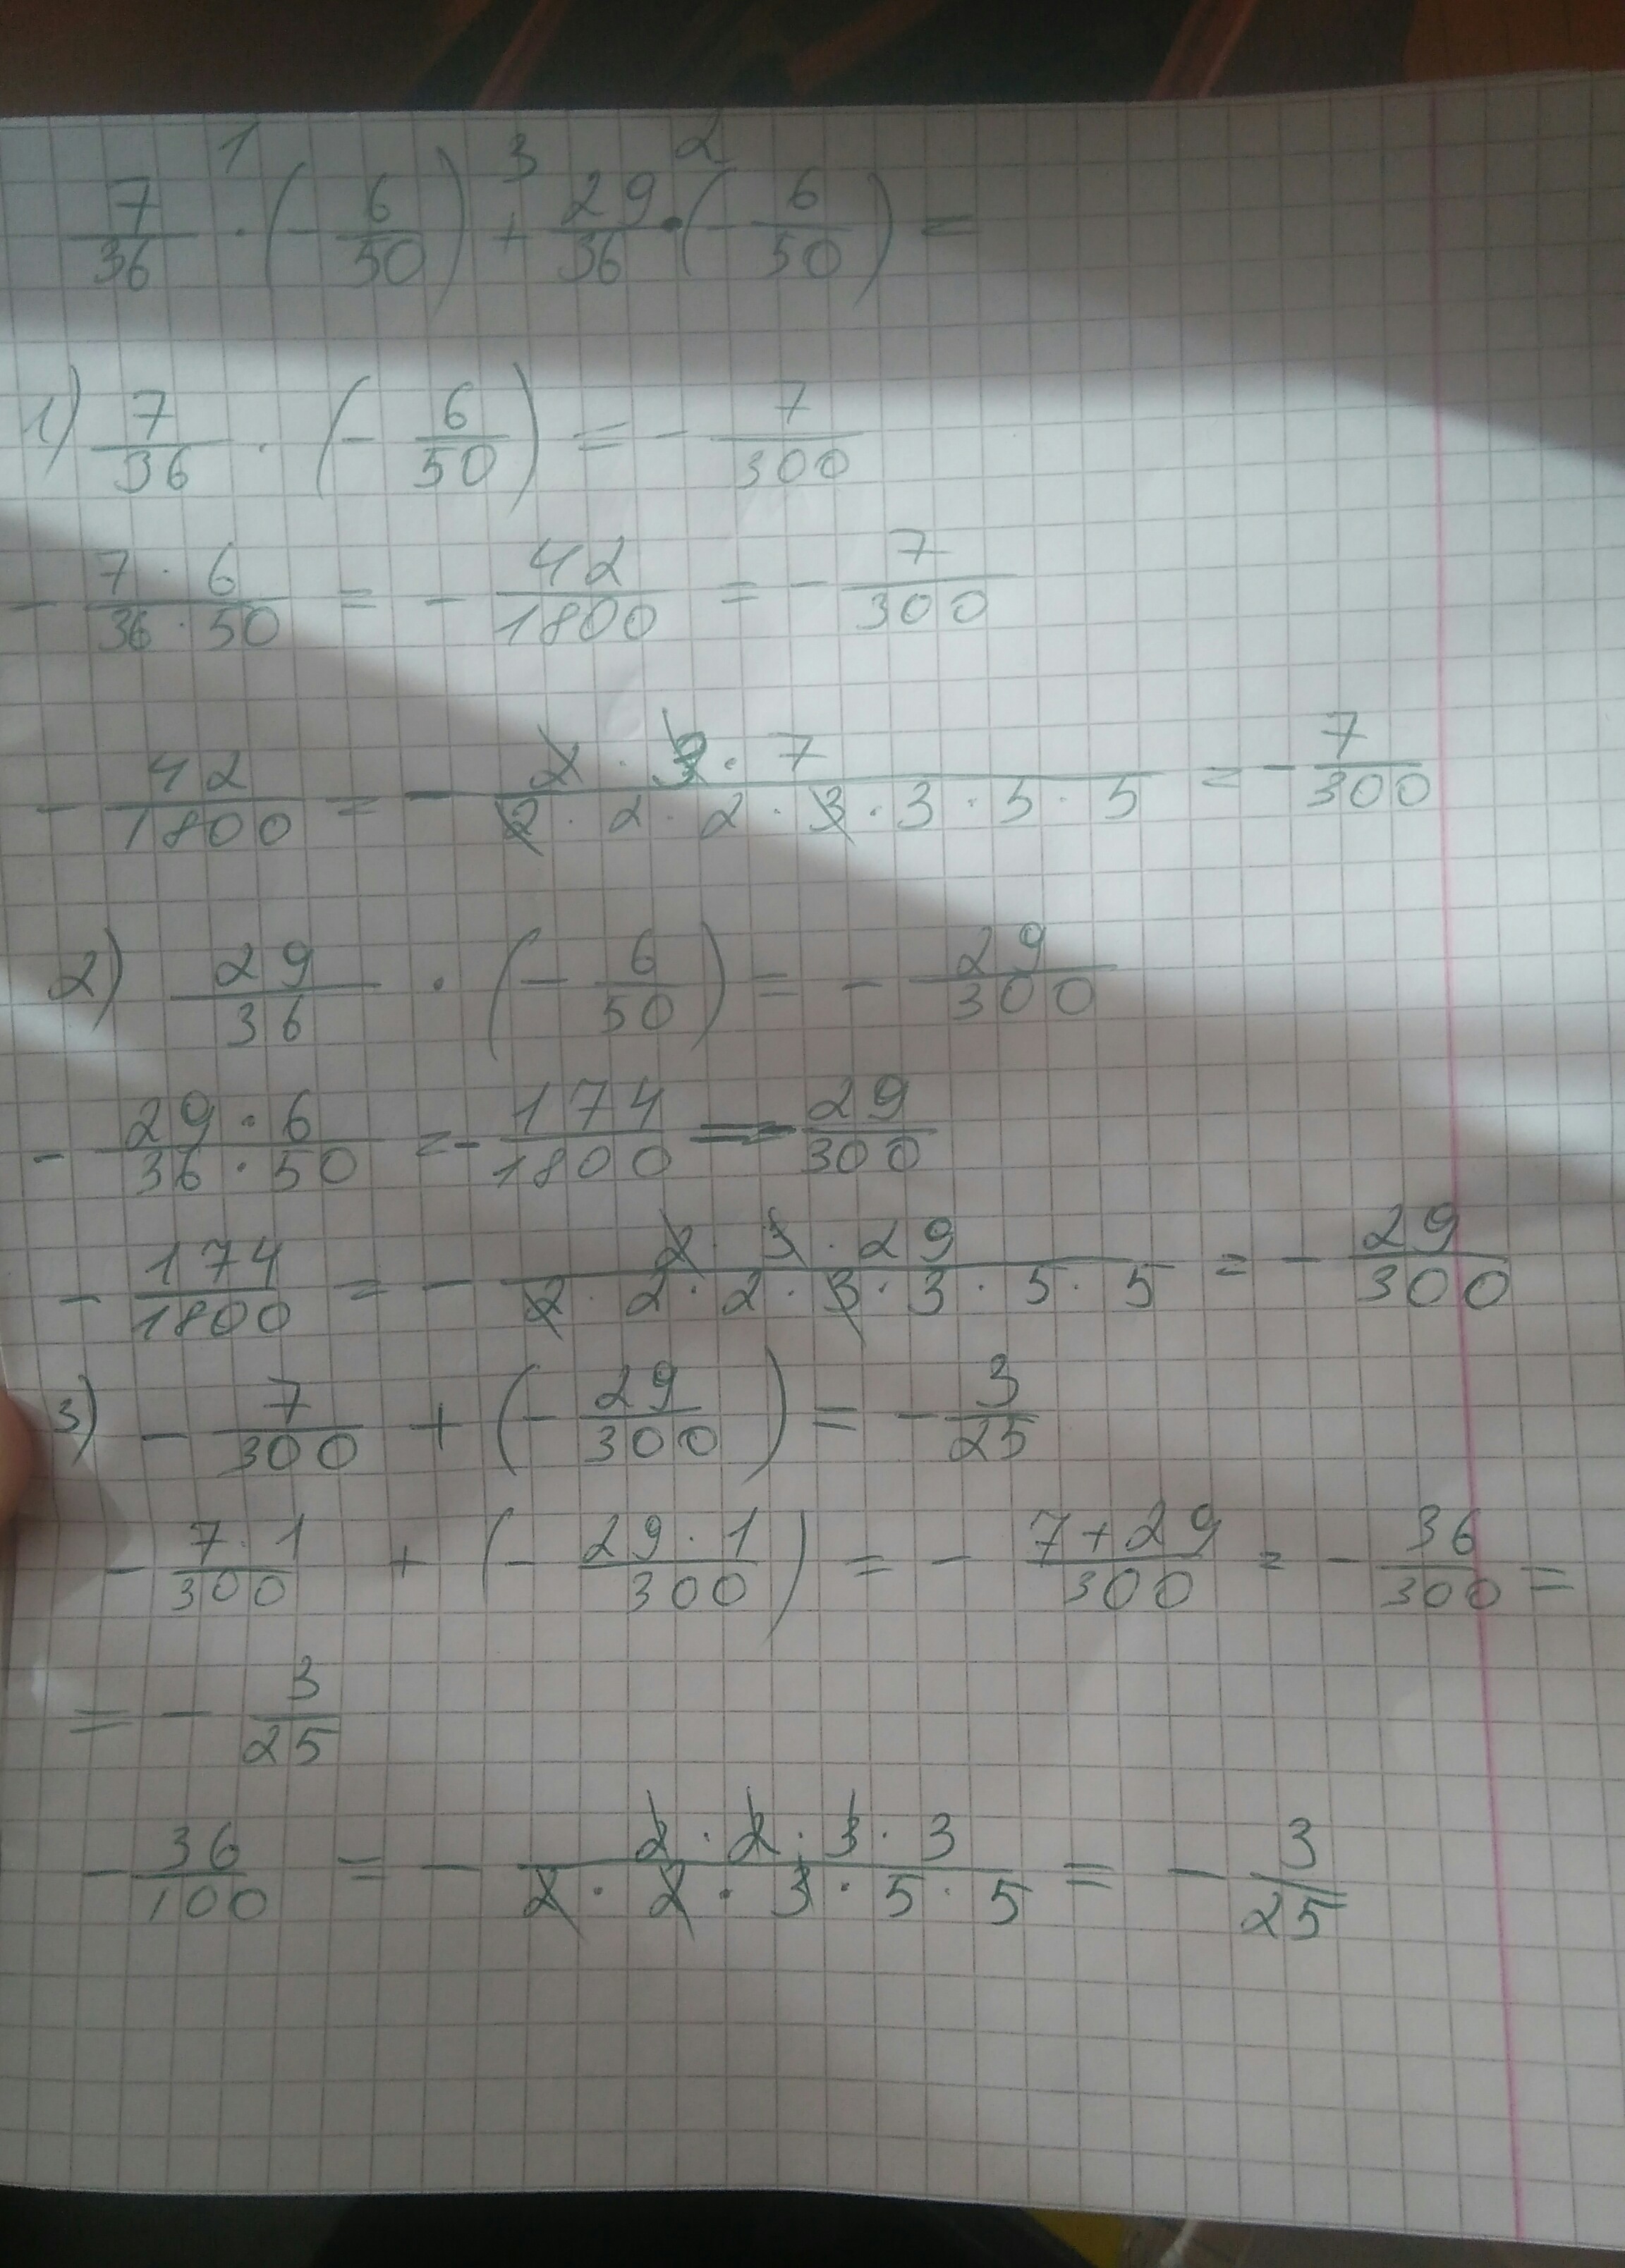 1 3 2
7/36 · (- 6/50) + 29/36 · (- 6/50) =
1) 7/36 · (- 6/50) = - 7/300
- 7 · 6/36 · 50 = - 42/1800 = - 7/300
- 42/1800 = - 2 · 3 · 7/2 · 2 · 2 · 3 · 3 · 5 · 5 = - 7/300
2) 29/36 · (- 6/50) = - 29/300
- 29 · 6/36 · 50 = - 174/1800 = - 29/300
- 174/1800 = - 2 · 3 · 29/2 · 2 · 2 · 3 · 3 · 5 · 5 = - 29/300
3) - 7/300 + (- 29/300) = - 3/25
- 7 · 1/300 + (- 29 · 1/300) = - 7 + 29/300 = - 36/300 =
= - 3/25
- 36/100 = - 2 · 2 · 3 · 3/2 · 2 · 3 · 5 · 5 = - 3/25